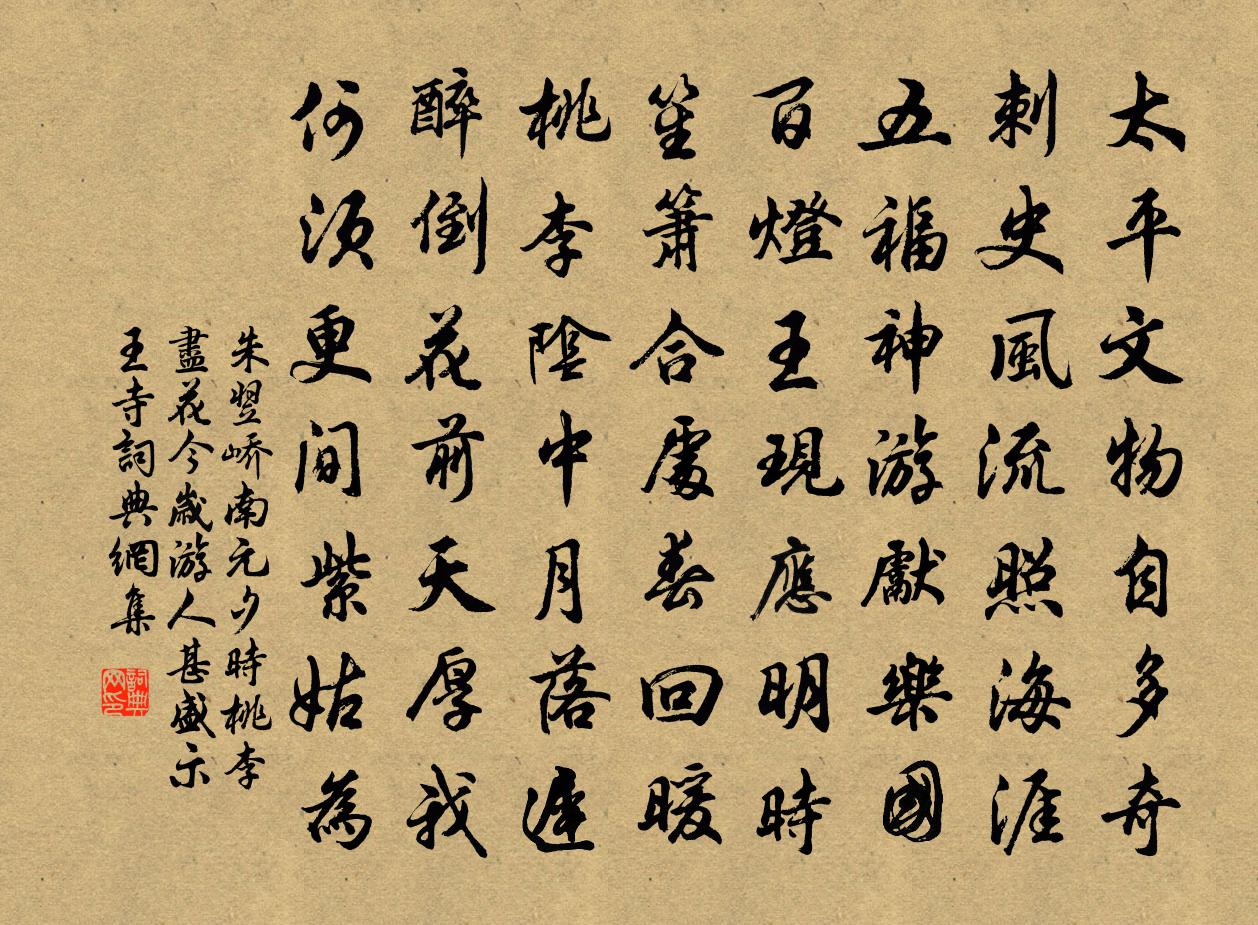 太平文物自多奇
刺史風流照海涯
五福神游獻樂國
百燈王現應明時
笙簫合處春回暖
桃李陰中月落遲
醉倒花前天厚我
何須更問紫姑為
朱翌嶠南元夕時桃李
盡花今歲游人甚盛示
王寺詞典網集
詞典网印